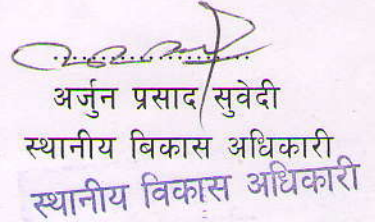 अर्जुन प्रसाद सुवेदी
स्थानीय बिकास अधिकारी
स्थानीय विकास अधिकारी